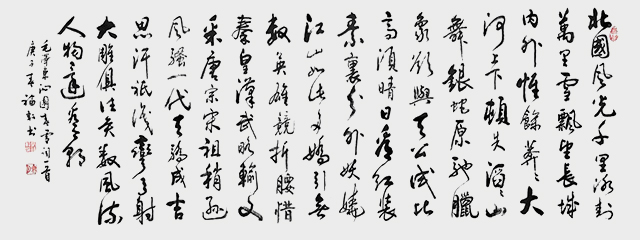 北國風光千里冰封
萬里雪飄望長城
内外惟餘莽々大
河上下頓失滔々山
舞銀蛇原馳臘
象欲與天公試比
高須晴日看紅裝
素裹分外妖嬈
江山如此多嬌引無
數英雄競折腰惜
秦皇漢武略輸文
采唐宗宋祖稍遜
風騷一代天驕成吉
思汗祇識彎弓射
大雕俱往矣數風流
人物還看今朝
毛澤東沁園春雪詞一首
庚子年書